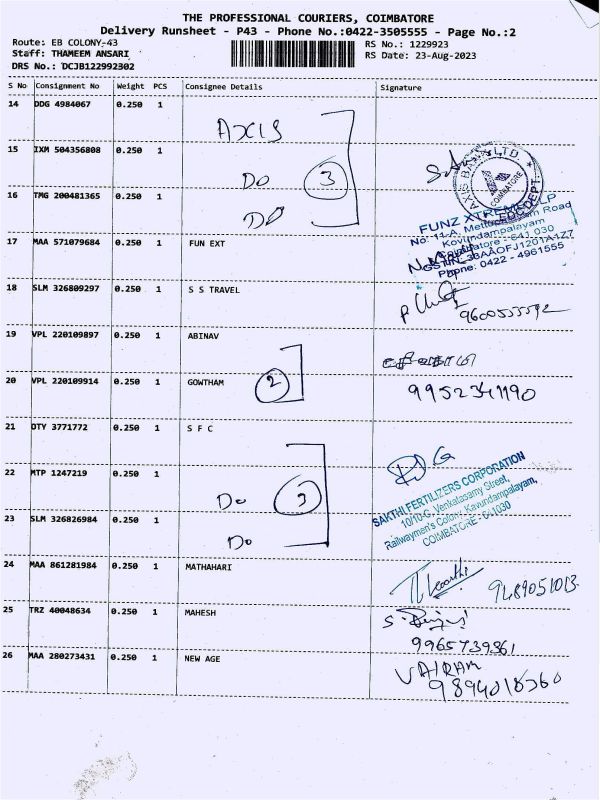 THE PROFESSIONAL COURIERS, COIMBATORE
Delivery Runsheet - P43 - Phone No.:0422-3505555 - Page No.:2
Route: EB COLONY-43
Staff: THAMEEM ANSARI
DRS No.: DCJB122992302
RS No.: 1229923
RS Date: 23-Aug-2023
S No Consignment No Weight PCS Consignee Details Signature
14 DDG 4984067 0.250 1 AXIS
15 IXM 504356808 0.250 1 DO 3
AXIS BANK LTD.
COIMBATORE
16 TMG 200481365 0.250 1 DO
FUNZ XTREME LLP
No: 11-A, Mettupalayam Road
Kovundampalayam
Coimbatore - 641 030
GSTIN: 33AAOFJ1201A1Z7
Phone: 0422 - 4961555
17 MAA 571079684 0.250 1 FUN EXT
18 SLM 326809297 0.250 1 S S TRAVEL
9600555592
19 VPL 220109897 0.250 1 ABINAV
20 VPL 220109914 0.250 1 GOWTHAM 2 9952341190
21 DTY 3771772 0.250 1 S F C
22 MTP 1247219 0.250 1 Do 3
SAKTHI FERTILIZERS CORPORATION
10/10-G, Venkatasamy Street,
Railwaymen's Colony, Kavundampalayam,
COIMBATORE - 641030
23 SLM 326826984 0.250 1 Do
24 MAA 861281984 0.250 1 MATHAHARI 9489051013
25 TRZ 40048634 0.250 1 MAHESH
9965739361
26 MAA 280273431 0.250 1 NEW AGE VAIRAM
9894018360